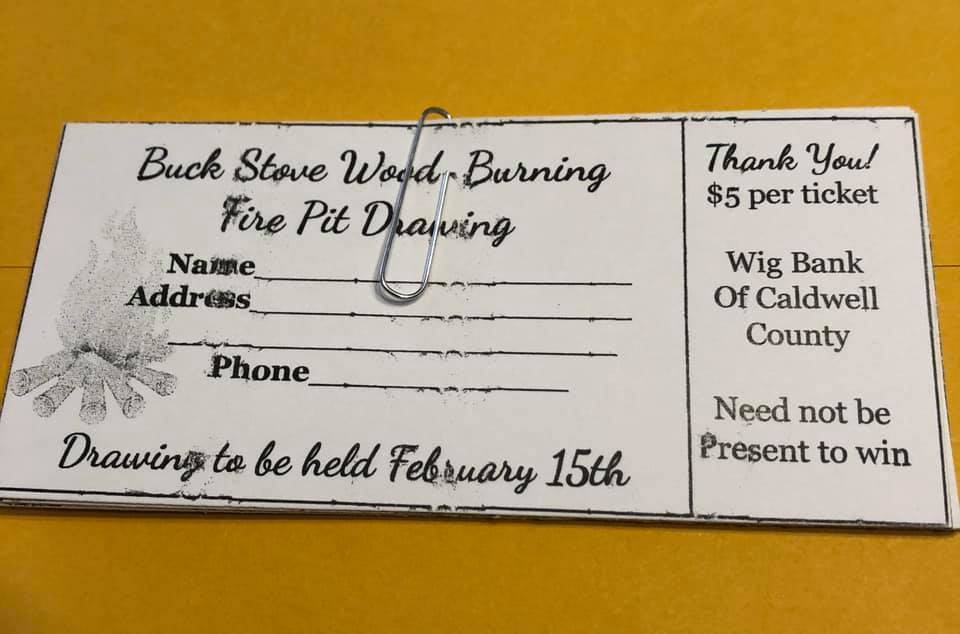 Buck Stove Wood-Burning
Fire Pit Drawing
Name
Address
Phone
Drawing to be held February 15th
Thank You!
$5 per ticket
Wig Bank
Of Caldwell
County
Need not be
Present to win